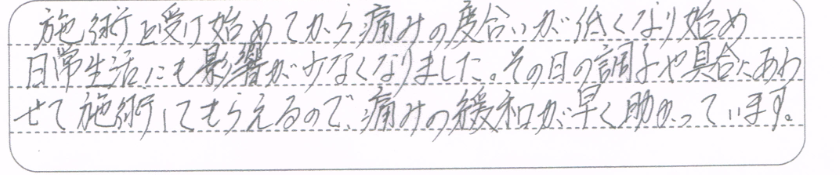 施術を受け始めてから痛みの度合いが低くなり始め
日常生活にも影響が少なくなりました。その日の調子や具合にあわ
せて施術してもらえるので、痛みの緩和が早く助かっています。